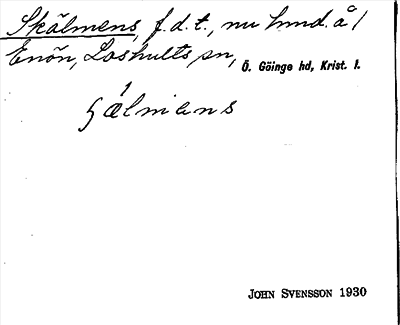 Skälmens, f.d.t., nu hmd. å
Enön, Loshults sn, Ö. Göinge hd, Krist. l.
JOHN SVENSSON 1930